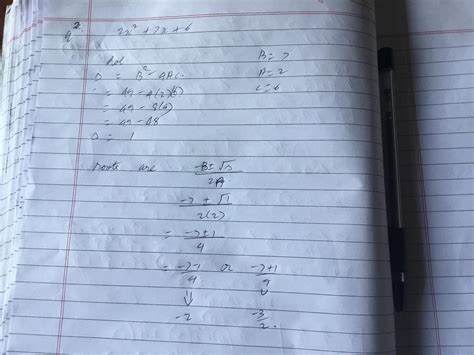 2.
2x² + 7x + 6
Sol
B = 7
D = B² - 4AC.
A = 2
= 49 - 4(2)(6)
C = 6
= 49 - 8(6)
= 49 - 48
D = 1
roots are -B ± √D / 2A
-7 ± √1 / 2(2)
= -7 ± 1 / 4
= -7-1 / 4 or -7+1 / 4
-2 -3/2.